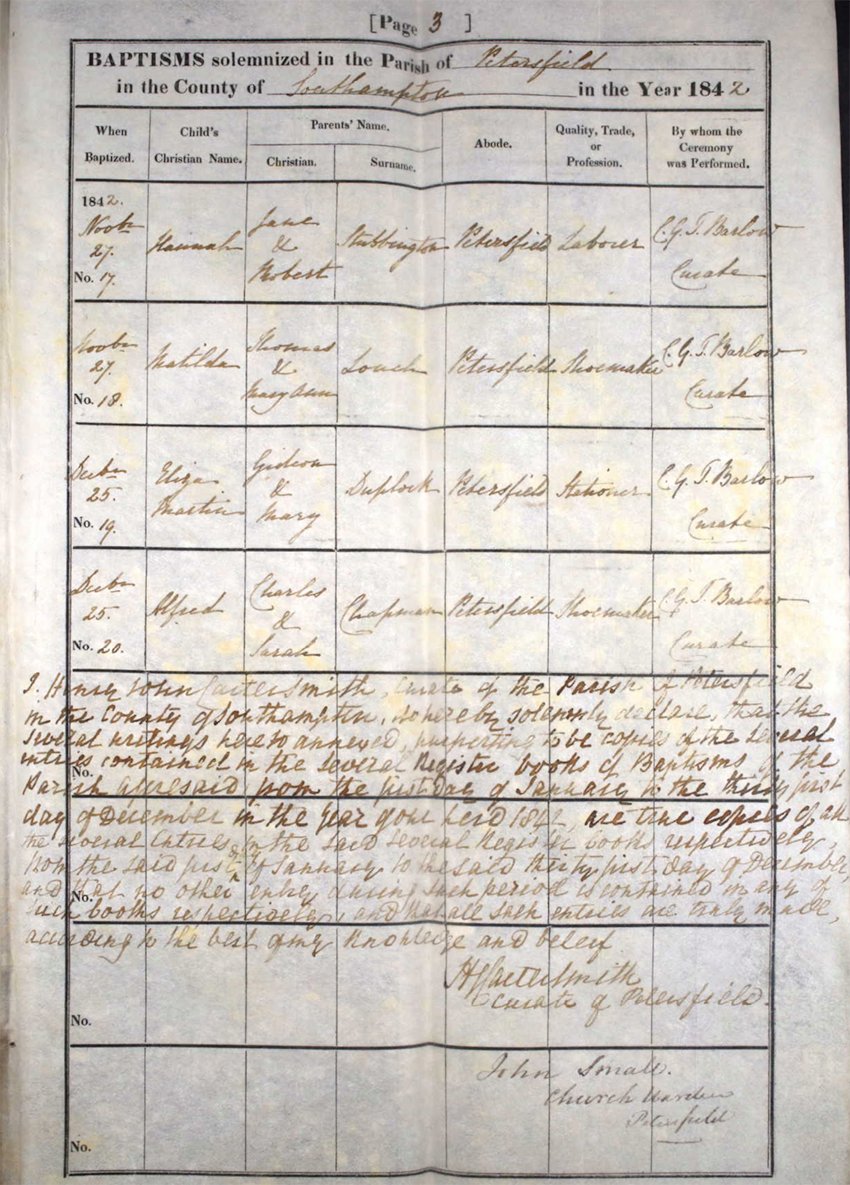 [Page 3 ]
BAPTISMS solemnized in the Parish of Petersfield
in the County of Southampton in the Year 1842
When Baptized. Child's Christian Name. Parents' Name. Christian. Surname. Abode. Quality, Trade, or Profession. By whom the Ceremony was Performed.
1842. Novbr 27. No. 17. Hannah Jane & Robert Stubbington Petersfield Laborer C. G. T. Barlow Curate
Novbr 27. No. 18. Matilda Thomas & Mary Ann Louch Petersfield Shoemaker C. G. T. Barlow Curate
Decbr 25. No. 19. Eliza Martin Gideon & Mary Duplock Petersfield Stationer C. G. T. Barlow Curate
Decbr 25. No. 20. Alfred Charles & Sarah Chapman Petersfield Shoemaker C. G. T. Barlow Curate
I. Henry John Smith, Curate of the Parish of Petersfield
in the County of Southampton, do hereby solemnly declare, that the
several writings hereto annexed, purporting to be copies of the several
entries contained in the several Register books of Baptisms of the
No.
Parish aforesaid from the first day of January to the thirty first
day of December in the year of our Lord 1842, are true copies of all
the several Entries in the said several Register books respectively,
from the said first of January to the said thirty first day of December,
and that no other entry during such period is contained in any of
No.
such books respectively, and that all such entries are truly made,
according to the best of my knowledge and beleif
Smith
Curate of Petersfield.
No.
John Small.
Church Warden
Petersfield
No.